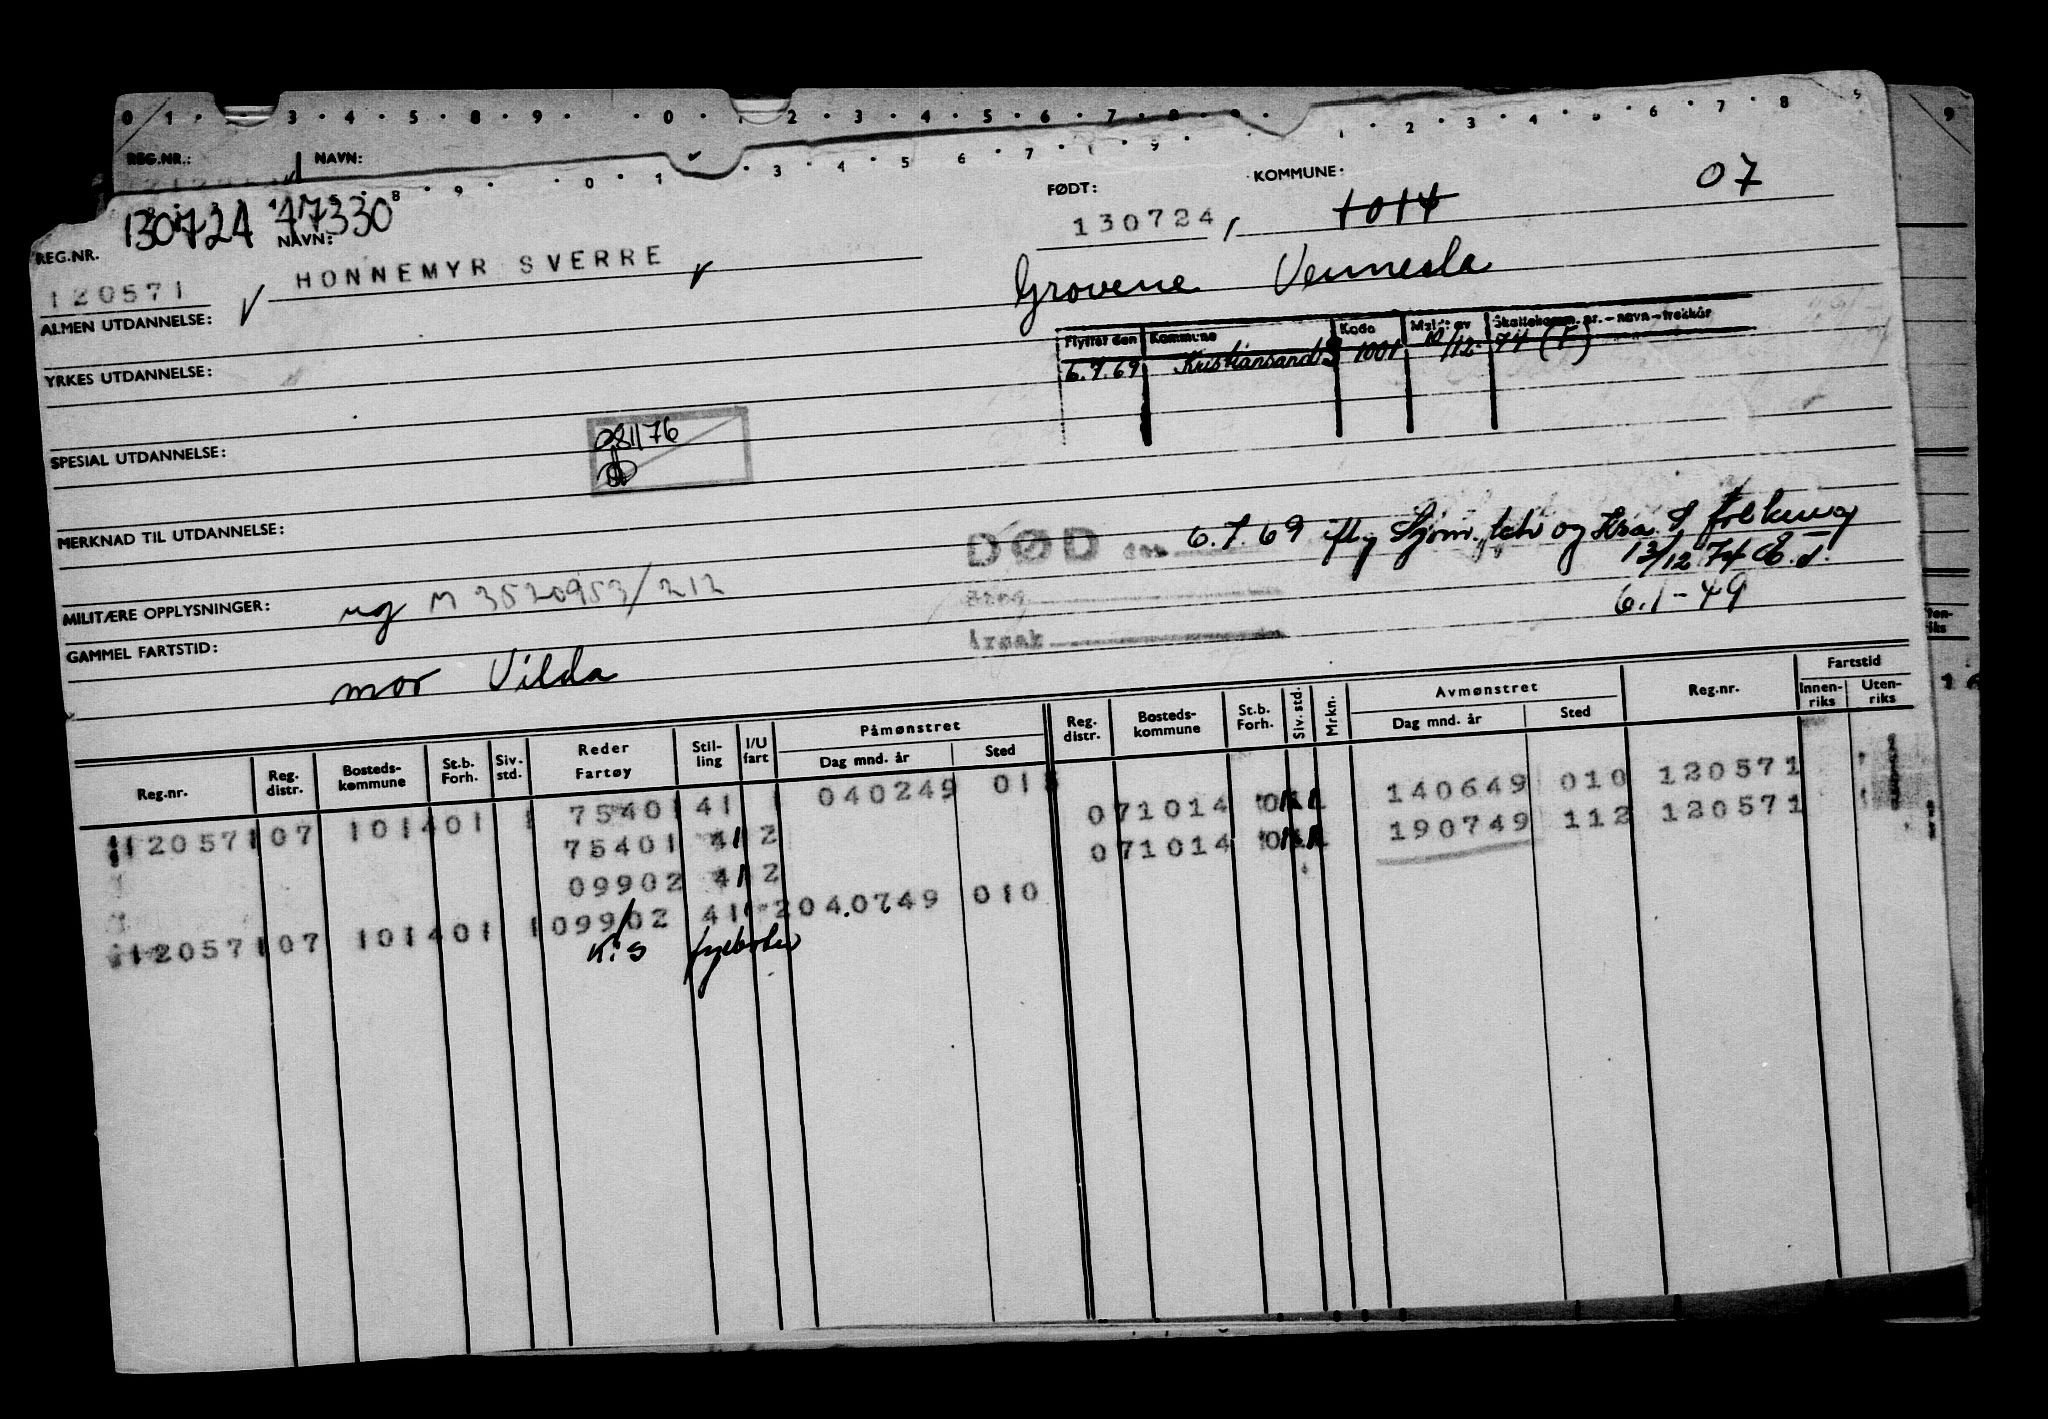 0 1 · 3 · 4 · 5 · 8 · 9 · · 0 · 1 2 · 3 · 4 · 5 · 6 · 7 · 8 · 9 ·
REG.NR.: NAVN:
9 · · 0 · 1 · 3 · 4 · 5 6 · 7 · 9 · 1 · 2 · 3 · 4 · 6 · 7 · 8 9
130724 47330
FØDT: KOMMUNE: 07
130724 1014
REG.NR. NAVN:
120571 HONNEMYR SVERRE
Grovene Vennesla
ALMEN UTDANNELSE:
Flyttet den Kommune Kode Meldt av Skattekomm. nr. – navn – trekkår
6.7.69 Kristiansand S 1001 10/12 74 (F)
YRKES UTDANNELSE:
081176
SPESIAL UTDANNELSE:
MERKNAD TIL UTDANNELSE:
DØD den 6.7.69 iflg Sjøm.ktr og Kra. S folkereg
13/12 74 E.S.
MILITÆRE OPPLYSNINGER: ug M 3520953/212
6.1-49
Årsak
GAMMEL FARTSTID:
mor Vilda
Reg.nr. Reg. distr. Bosteds- kommune St.b. Forh. Siv. std. Reder Fartøy Stil- ling I/U fart Påmønstret Dag mnd. år Sted Reg. distr. Bosteds- kommune St.b. Forh. Siv. std. Mrkn. Avmønstret Dag mnd. år Sted Reg.nr. Fartstid Innen- riks Uten- riks
120571 07 1014 01 1 75401 41 1 040249 01 07 1014 140649 010 120571
75401 41 2 07 1014 190749 112 120571
09902 41 2
120571 07 1014 01 1 09902 41 2 040749 010
K.S fyrbøter